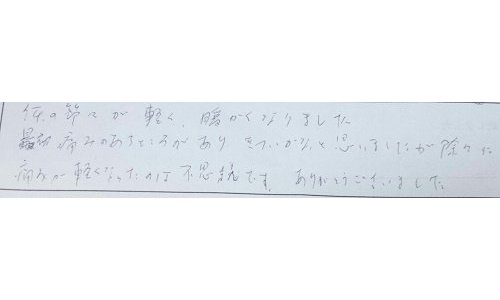 体の節々が軽く、暖かくなりました
最初痛みのあるところがあり きついかなと思いましたが徐々に
痛みが軽くなったのは不思議です。ありがとうございました。